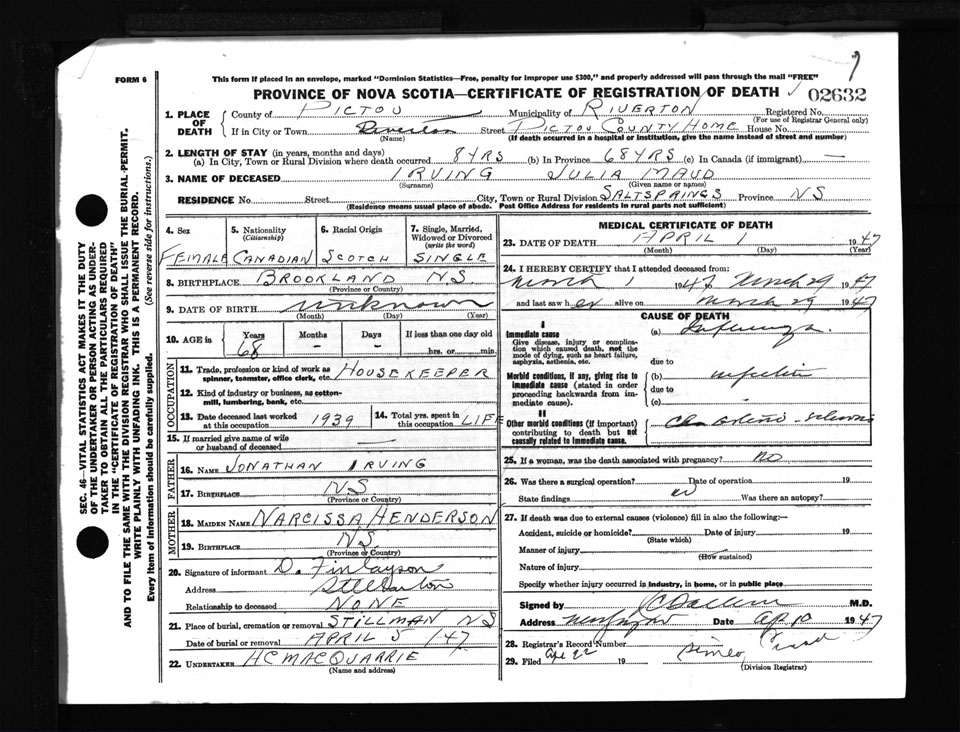 FORM 6
This form if placed in an envelope, marked "Dominion Statistics—Free, penalty for improper use $300," and properly addressed will pass through the mail "FREE"
PROVINCE OF NOVA SCOTIA—CERTIFICATE OF REGISTRATION OF DEATH
02632
1. PLACE OF DEATH
County of PICTOU Municipality of RIVERTON Registered No.
(For use of Registrar General only)
If in City or Town Riverton Street PICTOU COUNTY HOME House No.
(Name) (If death occurred in a hospital or institution, give the name instead of street and number)
2. LENGTH OF STAY (in years, months and days)
(a) In City, Town or Rural Division where death occurred 8 YRS (b) In Province 68 YRS (c) In Canada (if immigrant) —
3. NAME OF DECEASED IRVING JULIA MAUD
(Surname) (Given name or names)
RESIDENCE No. Street City, Town or Rural Division SALTSPRINGS Province NS
(Residence means usual place of abode. Post Office Address for residents in rural parts not sufficient)
4. Sex
FEMALE
5. Nationality
(Citizenship)
CANADIAN
6. Racial Origin
SCOTCH
7. Single, Married, Widowed or Divorced
(write the word)
SINGLE
8. BIRTHPLACE BROOKLAND N.S.
(Province or Country)
9. DATE OF BIRTH unknown
(Month) (Day) (Year)
10. AGE in Years Months Days If less than one day old
68 - - hrs. or min.
OCCUPATION
11. Trade, profession or kind of work as spinner, teamster, office clerk, etc. HOUSEKEEPER
12. Kind of industry or business, as cotton-mill, lumbering, bank, etc.
13. Date deceased last worked at this occupation 1939
14. Total yrs. spent in this occupation LIFE
15. If married give name of wife or husband of deceased —
FATHER
16. NAME JONATHAN IRVING
17. BIRTHPLACE NS
(Province or Country)
MOTHER
18. MAIDEN NAME NARCISSA HENDERSON
19. BIRTHPLACE NS
(Province or Country)
20. Signature of informant D. Finlayson
Address Stellarton
Relationship to deceased NONE
21. Place of burial, cremation or removal STILLMAN NS
Date of burial or removal APRIL 5 /47
22. UNDERTAKER HC MACQUARRIE
(Name and address)
MEDICAL CERTIFICATE OF DEATH
23. DATE OF DEATH APRIL 1 1947
(Month) (Day) (Year)
24. I HEREBY CERTIFY that I attended deceased from:
March 1 1947 to March 29 1947
and last saw her alive on March 29 1947
CAUSE OF DEATH
I
Immediate cause
Give disease, injury or complication which caused death, not the mode of dying, such as heart failure, asphyxia, asthenia, etc.
(a) Influenza
due to
Morbid conditions, if any, giving rise to immediate cause (stated in order proceeding backwards from immediate cause).
(b) infection
due to
(c)
II
Other morbid conditions (if important) contributing to death but not causally related to immediate cause.
25. If a woman, was the death associated with pregnancy? no
26. Was there a surgical operation? Date of operation 19
State findings Was there an autopsy?
27. If death was due to external causes (violence) fill in also the following:—
Accident, suicide or homicide? Date of injury 19
(State which)
Manner of injury
(How sustained)
Nature of injury
Specify whether injury occurred in industry, in home, or in public place
Signed by M.D.
Address Date Ap 10 1947
28. Registrar's Record Number
29. Filed Apr 22 19
(Division Registrar)
SEC. 46—VITAL STATISTICS ACT MAKES IT THE DUTY
OF THE UNDERTAKER OR PERSON ACTING AS UNDER-
TAKER TO OBTAIN ALL THE PARTICULARS REQUIRED
IN THE "CERTIFICATE OF REGISTRATION OF DEATH"
AND TO FILE THE SAME WITH THE DIVISION REGISTRAR WHO SHALL ISSUE THE BURIAL-PERMIT.
WRITE PLAINLY WITH UNFADING INK. THIS IS A PERMANENT RECORD.
Every item of information should be carefully supplied. (See reverse side for instructions.)